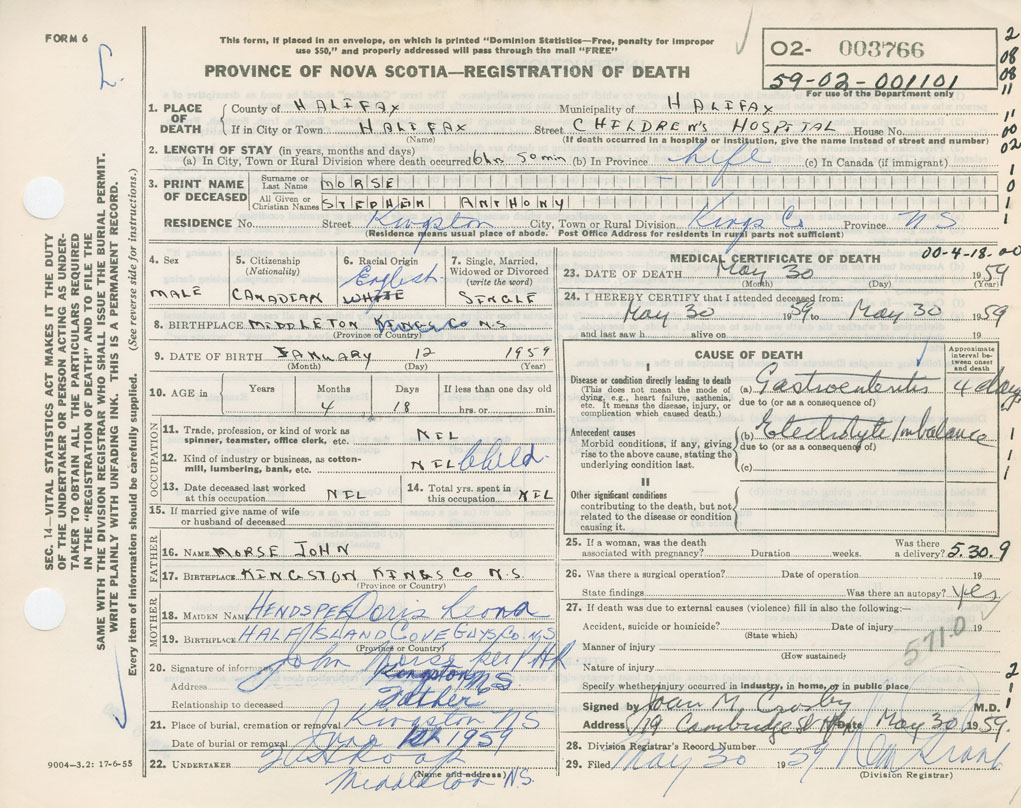 FORM 6
This form, if placed in an envelope, on which is printed "Dominion Statistics—Free, penalty for improper
use $50," and properly addressed will pass through the mail "FREE"
PROVINCE OF NOVA SCOTIA—REGISTRATION OF DEATH
02- 003766
59-02-001101
For use of the Department only
1. PLACE OF DEATH
County of HALIFAX Municipality of HALIFAX
If in City or Town HALIFAX Street CHILDREN'S HOSPITAL House No.
(Name) (If death occurred in a hospital or institution, give the name instead of street and number)
2. LENGTH OF STAY (in years, months and days)
(a) In City, Town or Rural Division where death occurred 6 hr 50 min (b) In Province Life (c) In Canada (if immigrant)
3. PRINT NAME OF DECEASED
Surname or Last Name MORSE
All Given or Christian Names STEPHEN ANTHONY
RESIDENCE No. Street Kingston City, Town or Rural Division Kings Co Province NS
(Residence means usual place of abode. Post Office Address for residents in rural parts not sufficient)
4. Sex
MALE
5. Citizenship
(Nationality)
CANADIAN
6. Racial Origin
English
WHITE
7. Single, Married,
Widowed or Divorced
(write the word)
SINGLE
8. BIRTHPLACE MIDDLETON KINGS CO N.S
(Province or Country)
9. DATE OF BIRTH JANUARY 12 1959
(Month) (Day) (Year)
10. AGE in
Years Months Days If less than one day old
4 18 hrs. or min.
OCCUPATION
11. Trade, profession, or kind of work as
spinner, teamster, office clerk, etc. NIL
12. Kind of industry or business, as cotton-
mill, lumbering, bank, etc. NIL Child
13. Date deceased last worked
at this occupation NIL
14. Total yrs. spent in
this occupation NIL
15. If married give name of wife
or husband of deceased
FATHER
16. NAME MORSE JOHN
17. BIRTHPLACE KINGSTON KINGS CO N.S.
(Province or Country)
MOTHER
18. MAIDEN NAME HENDSPEE Doris Leona
19. BIRTHPLACE HALF ISLAND COVE GUYS CO. N.S
(Province or Country)
20. Signature of informant John Morse per
Address Kingston NS
Relationship to deceased Father
21. Place of burial, cremation or removal Kingston NS
Date of burial or removal June 1959
22. UNDERTAKER
Middleton N.S.
(Name and address)
9004—3.2: 17-6-55
MEDICAL CERTIFICATE OF DEATH
00-4-18-00
23. DATE OF DEATH May 30 1959
(Month) (Day) (Year)
24. I HEREBY CERTIFY that I attended deceased from:
May 30 1959 to May 30 1959
and last saw h alive on 19
CAUSE OF DEATH
Approximate interval between onset and death
I
Disease or condition directly leading to death
(This does not mean the mode of
dying, e.g., heart failure, asthenia,
etc. It means the disease, injury, or
complication which caused death.)
(a) Gastroenteritis 4 days
due to (or as a consequence of)
Antecedent causes
Morbid conditions, if any, giving
rise to the above cause, stating the
underlying condition last.
(b) Electrolyte Imbalance
due to (or as a consequence of)
(c)
II
Other significant conditions
contributing to the death, but not
related to the disease or condition
causing it.
25. If a woman, was the death
associated with pregnancy? Duration weeks. Was there a delivery? 5.30.9
26. Was there a surgical operation? Date of operation 19
State findings Was there an autopsy? yes
27. If death was due to external causes (violence) fill in also the following:—
Accident, suicide or homicide? Date of injury 19
(State which)
Manner of injury
(How sustained)
571.0
Nature of injury
Specify whether injury occurred in industry, in home, or in public place
Signed by Joan M. Crosby M.D.
Address 179 Cambridge St Hfx Date May 30 1959.
28. Division Registrar's Record Number
29. Filed May 30 1959
(Division Registrar)
SEC. 14—VITAL STATISTICS ACT MAKES IT THE DUTY
OF THE UNDERTAKER OR PERSON ACTING AS UNDER-
TAKER TO OBTAIN ALL THE PARTICULARS REQUIRED
IN THE "REGISTRATION OF DEATH" AND TO FILE THE
SAME WITH THE DIVISION REGISTRAR WHO SHALL ISSUE THE BURIAL PERMIT.
WRITE PLAINLY WITH UNFADING INK. THIS IS A PERMANENT RECORD.
Every item of information should be carefully supplied. (See reverse side for instructions.)